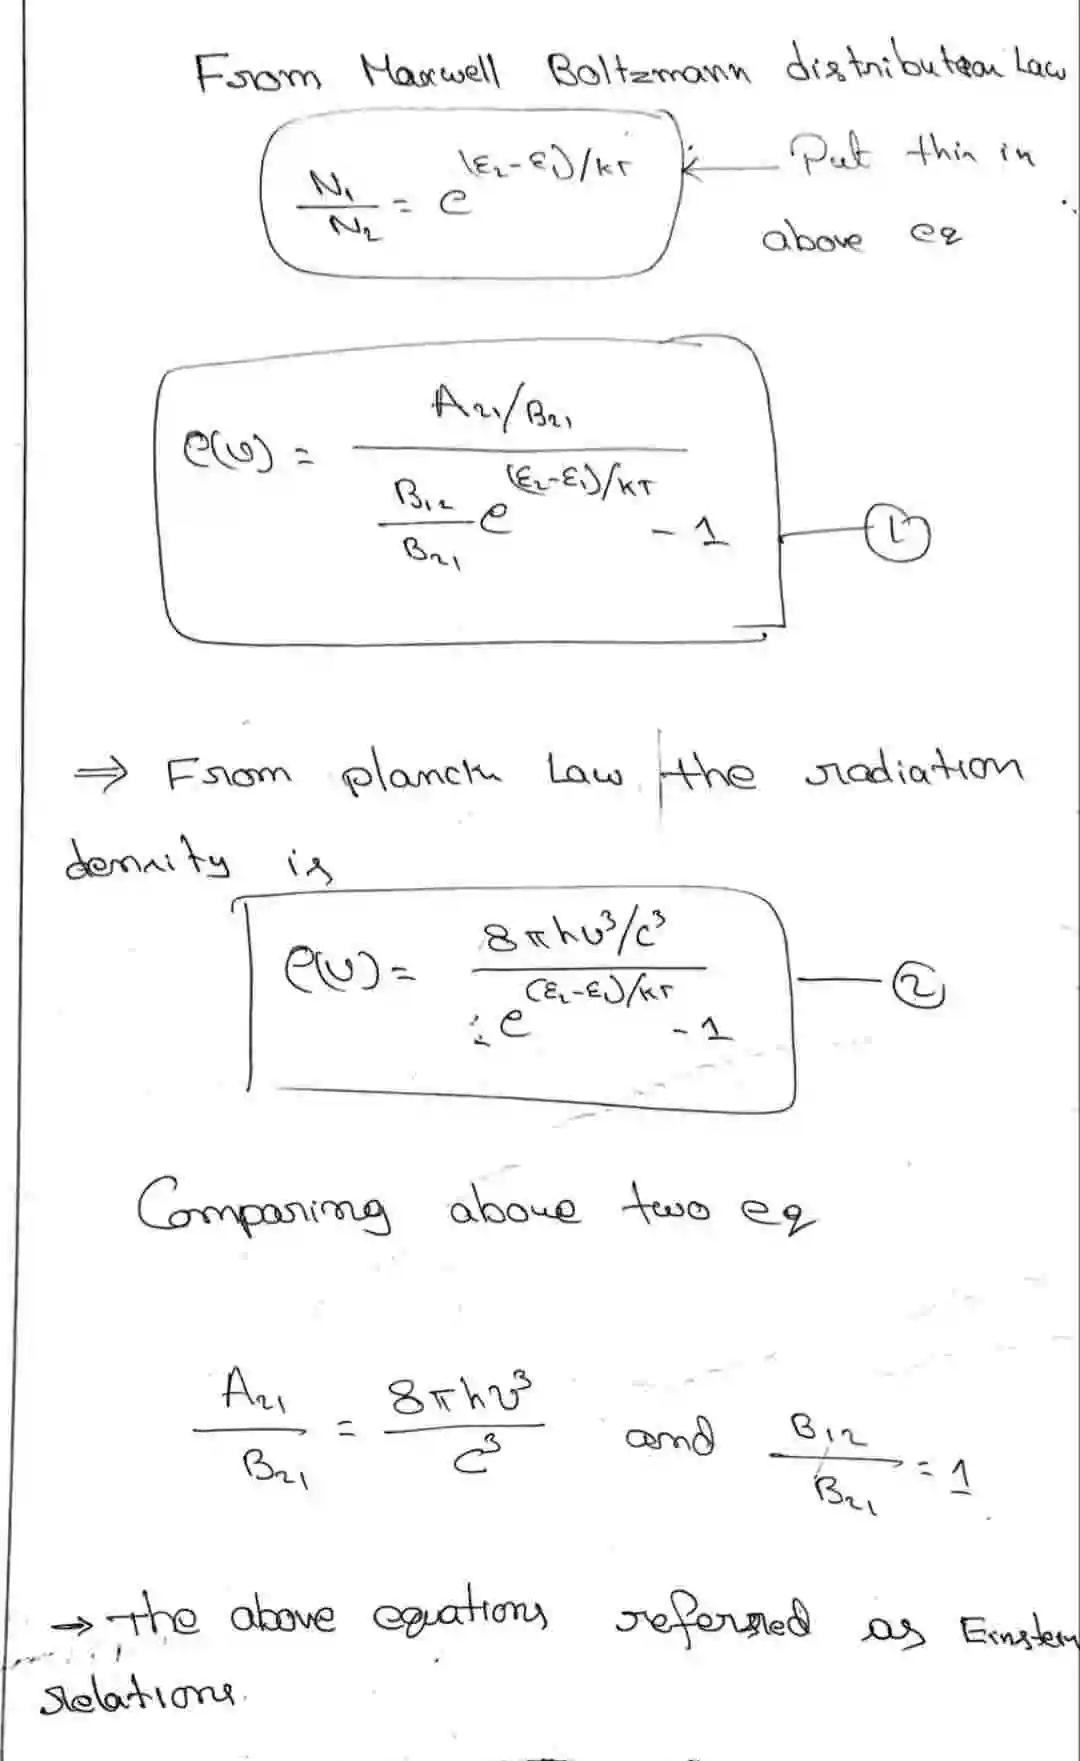 From Maxwell Boltzmann distribution Law
N₁/N₂ = e^(E₂-E₁)/kT ← Put this in
above eq
ρ(υ) = (A₂₁/B₂₁) / (B₁₂/B₂₁ e^(E₂-E₁)/kT - 1) — ①
⇒ From planck Law the radiation
density is
ρ(υ) = (8πhυ³/c³) / (e^(E₂-E₁)/kT - 1) — ②
Comparing above two eq
A₂₁/B₂₁ = 8πhυ³/c³ and B₁₂/B₂₁ = 1
→ The above equations referred as Einstein
relations.